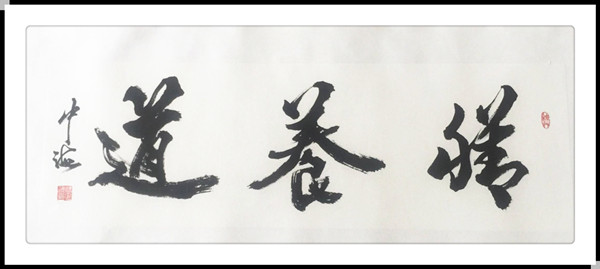 膳養道
中海